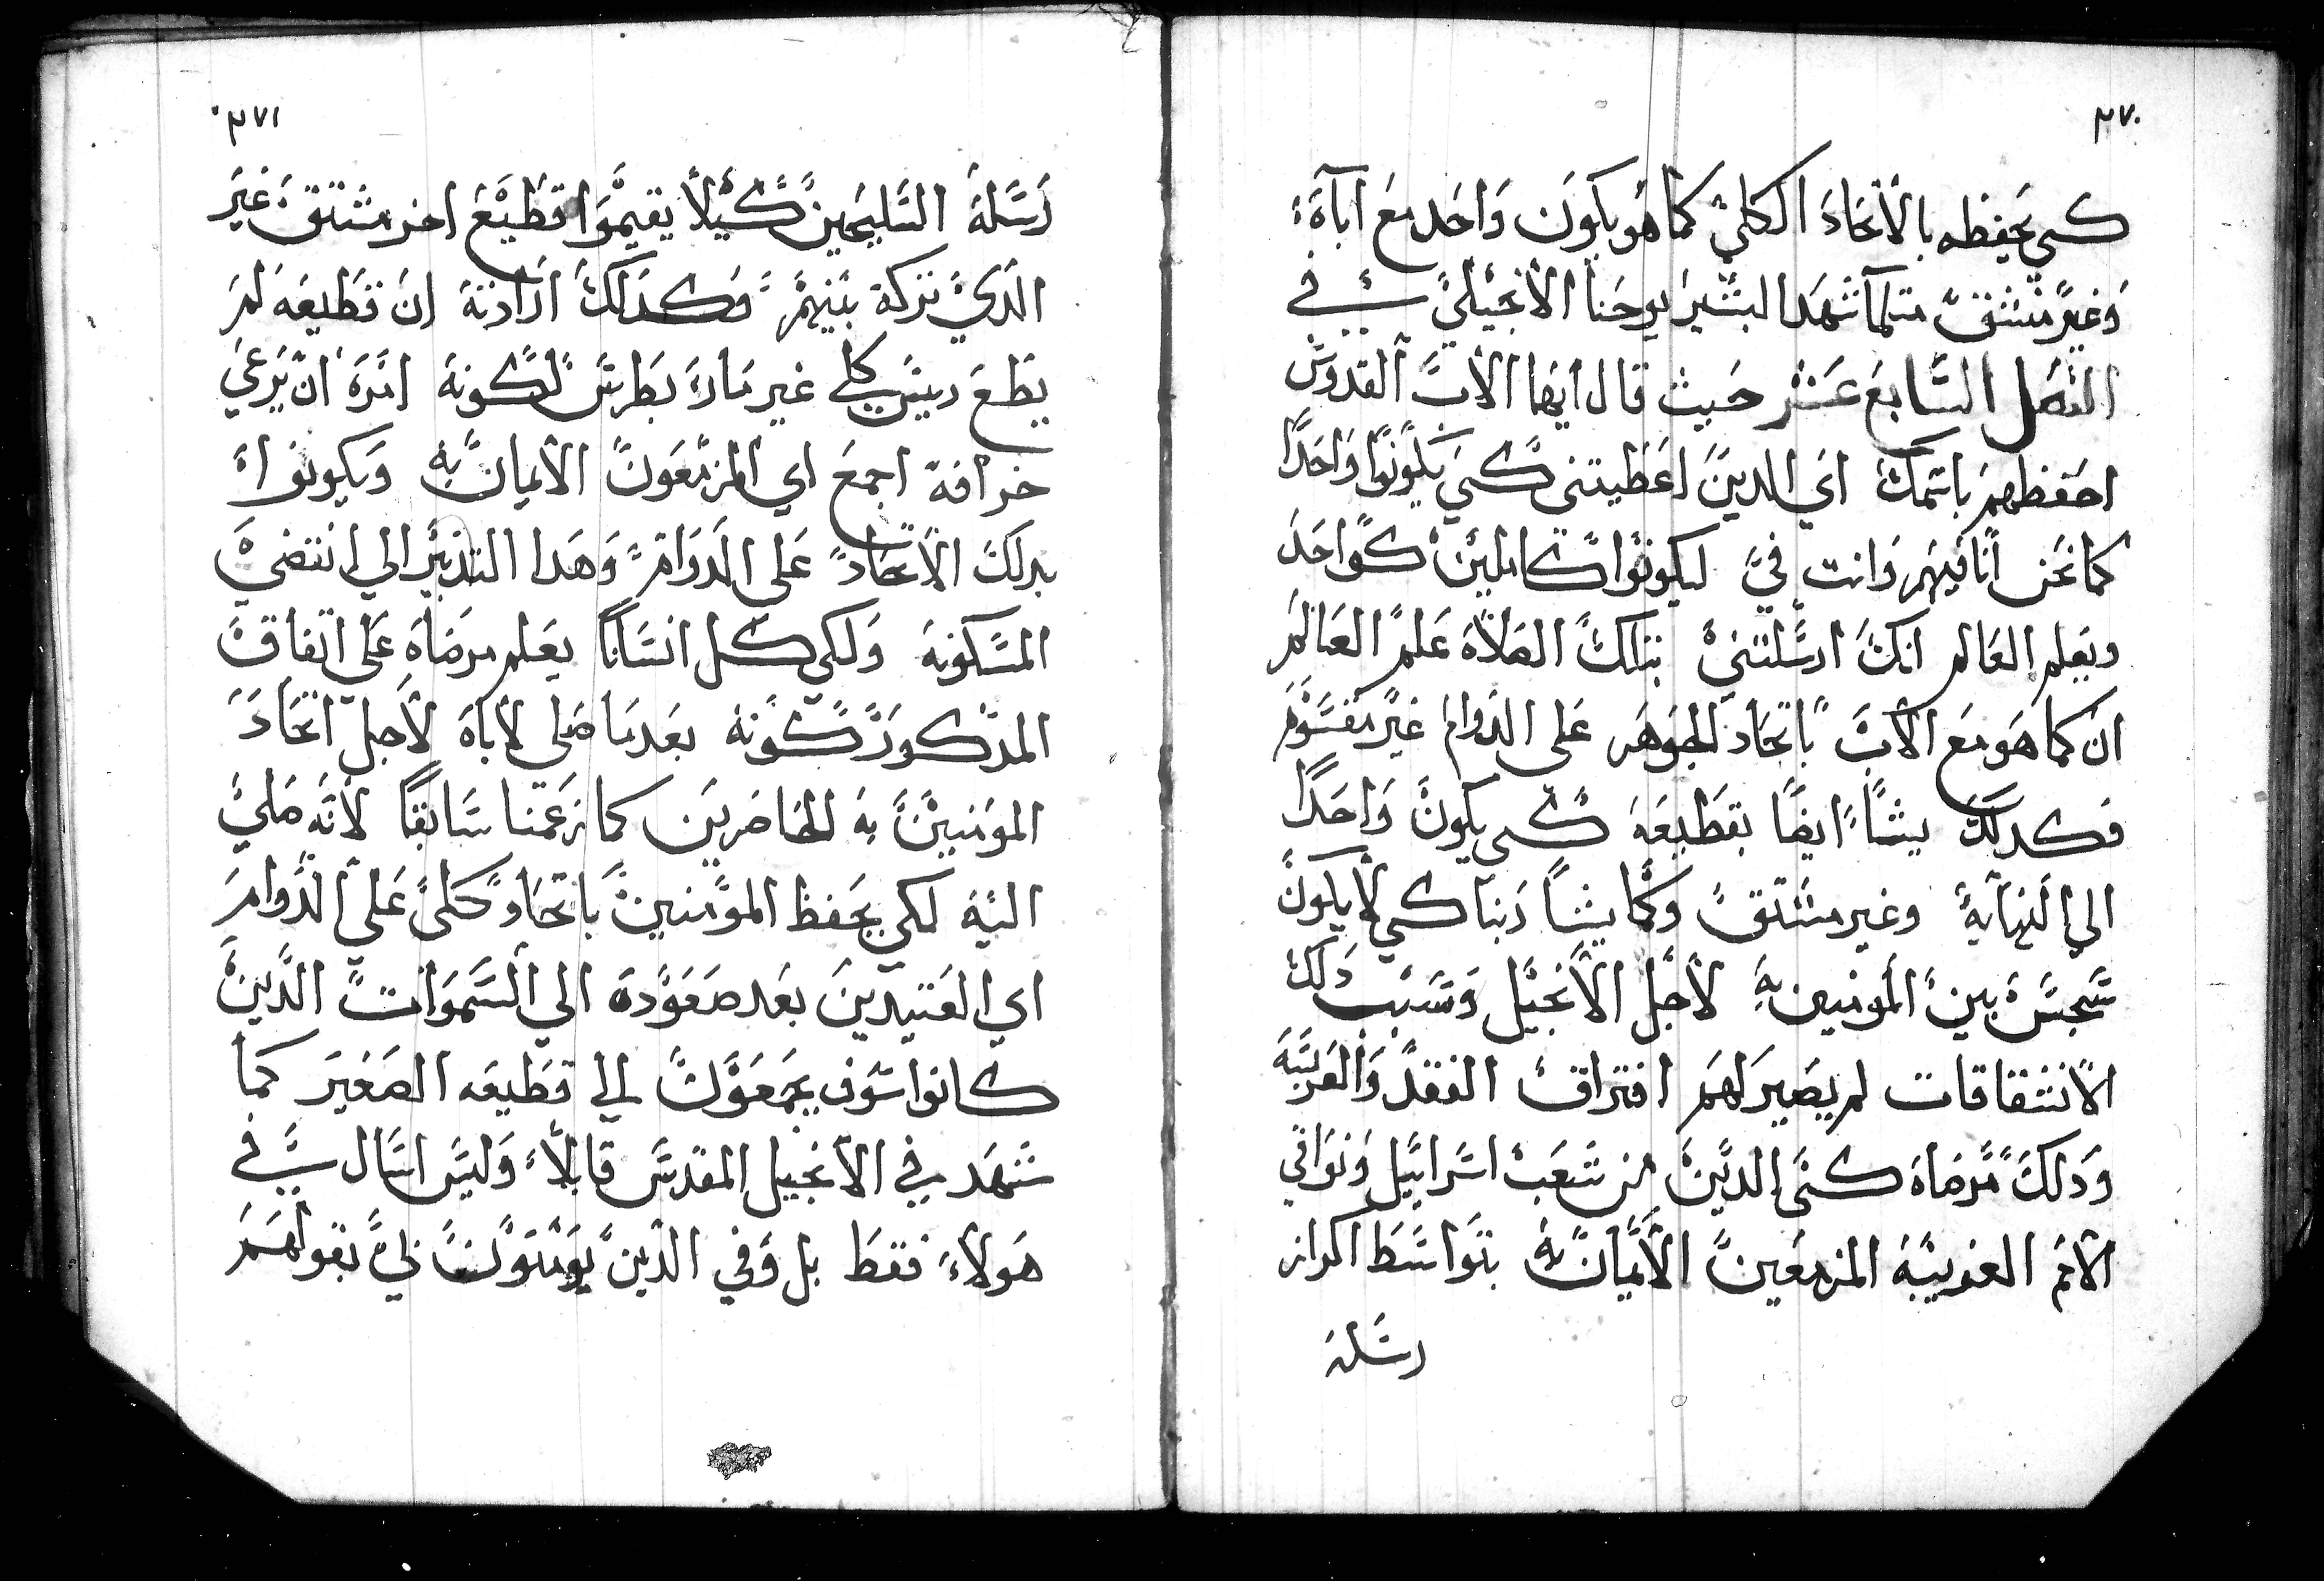 ٣٧٠
كي يحفظه بالاتحاد الكلي كما هو يكون واحد مع اباه
وغير منشق متلما شهد البشير يوحنا الانجيلي في
الفصل السابع عشر حيث قال ايها الاب القدوس
احفظهم باسمك اي الدين اعطيتني كي يكونوا واحدا
كما نحن انا فيهم وانت في ليكونوا كاملين كواحد
ويعلم العالم انك ارسلتني بتلك الصلاه علم العالم
ان كما هو مع الاب باتحاد الجوهر على الدوام غير مقسوم
وكدلك يشا ايضا بقطيعه كي يكون واحدا
الي النهايه وغير منشق وكما يشا ربنا كي لا يكون
سجس بين المومنين به لاجل الانجيل وسبب دلك
الانشقاقات لم يصير لهم افتراق الفقد والغربيه
ودلك مرضاه كنى الدين من شعب اسراييل ونوافي
الامم الغريبه المزمعين الايمان به بتواسط اكراز
رسله
٣٧١
رسله السليحين كيلا يقيموا قطيع اخر منشق غير
الدي تركه بينهم وكدلك ارادته ان قطيعه لم
يطع ريس كلي غير مار بطرس لكونه امره ان يرعي
خرافه اجمع اي المزمعون الايمان به ويكونوا
بدلك الاتحاد على الدوام وهدا التدبير الي انقضي
المسكونه ولكي كل انسانا يعلم مرضاه على اتفاق
المدكور كونه بعدما صلى لاباه لاجل اتحاد
المومنين به الحاضرين كما زعمنا سابقا لانه صلي
اليه لكي يحفظ المومنين باتحاد كلى على الدوام
اي العتيدين بعد صعوده الي السموات الدين
كانوا سوف يجمعون الي قطيعه الصغير كما
شهد في الانجيل المقدس قايلا وليس اسال في
هولاء فقط بل وفي الدين يومنون بي بقولهم